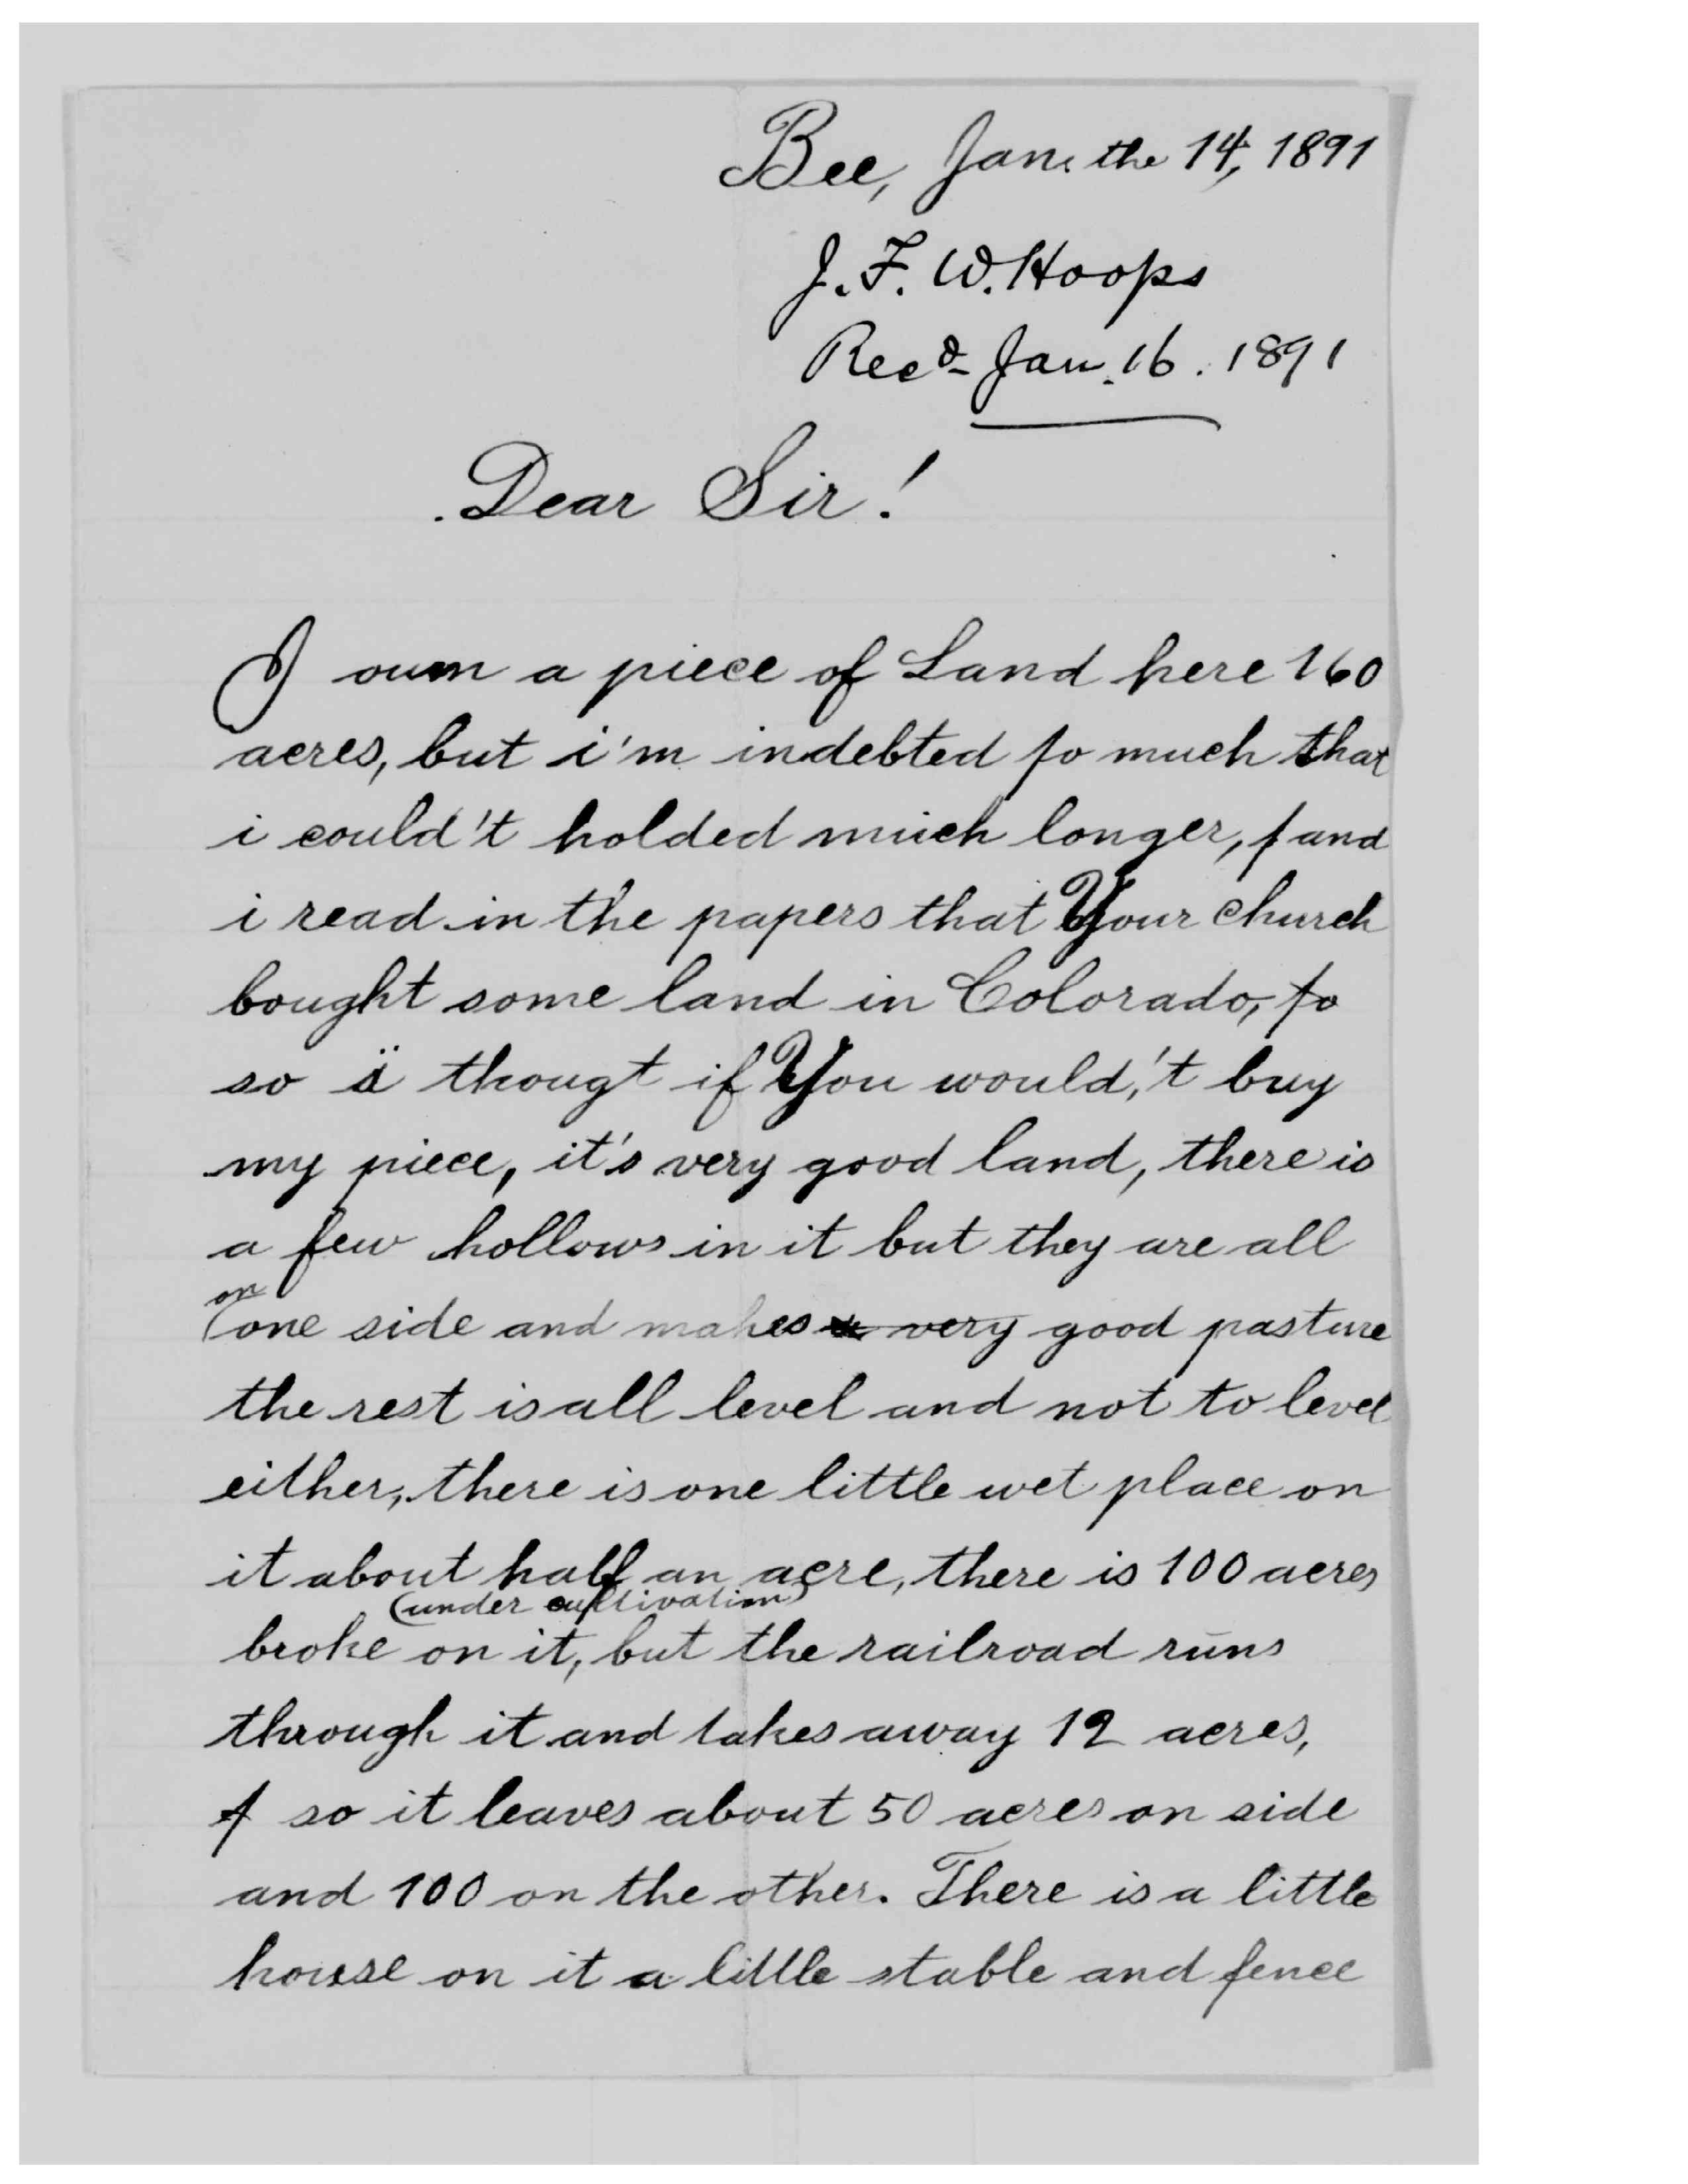 Bee, Jan. the 14, 1891
J. F. W. Hoops
Recd Jan. 16. 1891
Dear Sir!
I own a piece of Land here 160
acres, but i'm indebted so much that
i could't holded much longer, and
i read in the papers that Your church
bought some land in Colorado, so
so i thougt if You would,'t buy
my piece, it's very good land, there is
a few hollows in it but they are all
on
one side and makes very good pasture
the rest is all level and not to level
either, there is one little wet place on
it about half an acre, there is 100 acres
(under cultivation)
broke on it, but the railroad runs
through it and takes away 12 acres,
so it leaves about 50 acres on side
and 100 on the other. There is a little
house on it a little stable and fence